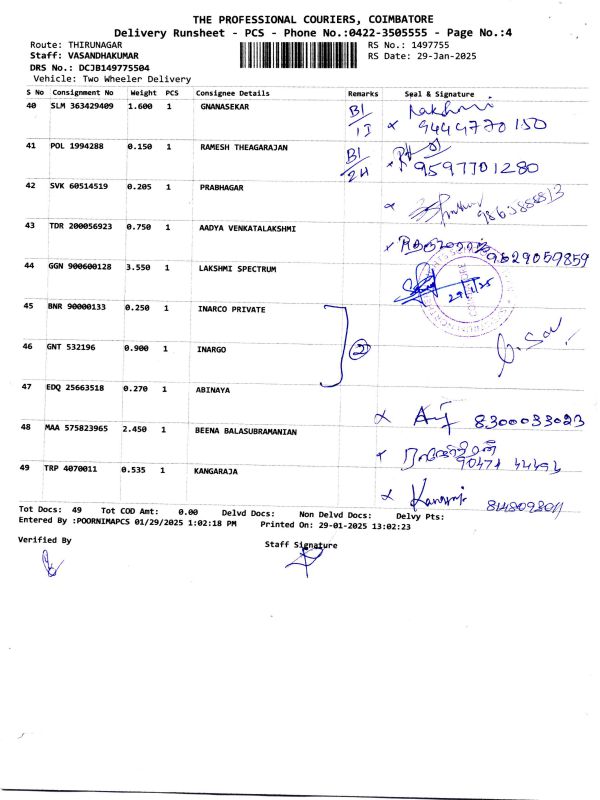 THE PROFESSIONAL COURIERS, COIMBATORE
Delivery Runsheet - PCS - Phone No.:0422-3505555 - Page No.:4
Route: THIRUNAGAR RS No.: 1497755
Staff: VASANDHAKUMAR RS Date: 29-Jan-2025
DRS No.: DCJB149775504
Vehicle: Two Wheeler Delivery
S No Consignment No Weight PCS Consignee Details Remarks Seal & Signature
40 SLM 363429409 1.600 1 GNANASEKAR BI/13 x Lakshmi
9444770150
41 POL 1994288 0.150 1 RAMESH THEAGARAJAN BI/2H x
9597701280
42 SVK 60514519 0.205 1 PRABHAGAR x
43 TDR 200056923 0.750 1 AADYA VENKATALAKSHMI x
9629059859
44 GGN 900600128 3.550 1 LAKSHMI SPECTRUM
29/1/25
45 BNR 90000133 0.250 1 INARCO PRIVATE
46 GNT 532196 0.900 1 INARGO 2
47 EDQ 25663518 0.270 1 ABINAYA x 8300033023
48 MAA 575823965 2.450 1 BEENA BALASUBRAMANIAN
49 TRP 4070011 0.535 1 KANGARAJA x
Tot Docs: 49 Tot COD Amt: 0.00 Delvd Docs: Non Delvd Docs: Delvy Pts:
Entered By :POORNIMAPCS 01/29/2025 1:02:18 PM Printed On: 29-01-2025 13:02:23
Verified By Staff Signature